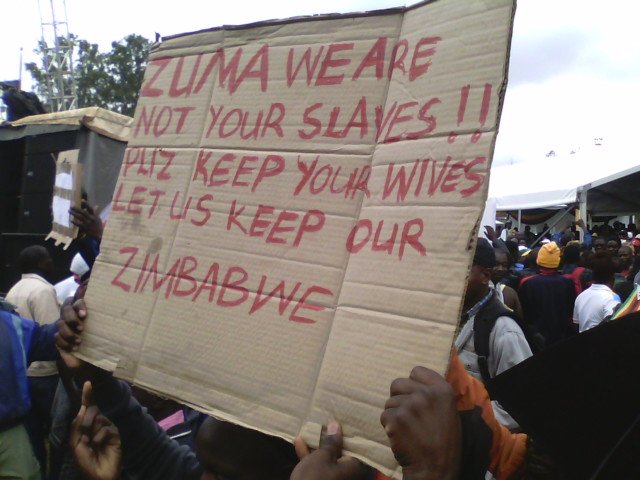 ZUMA WE ARE
NOT YOUR SLAVES!!
PLIZ KEEP YOUR WIVES
LET US KEEP OUR
ZIMBABWE